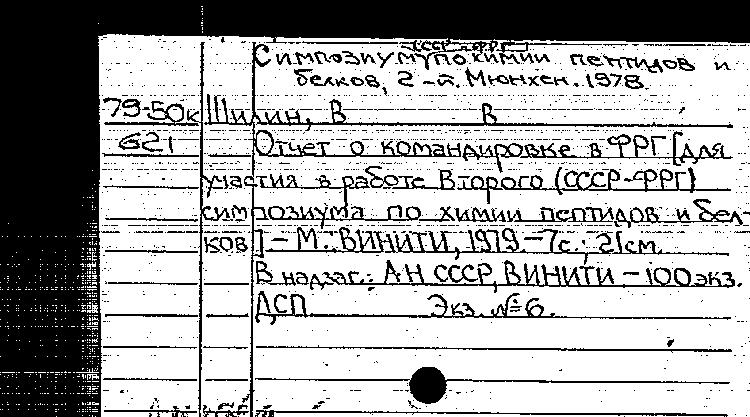 СССР-ФРГ
Симпозиум по химии пептидов и
белков, 2-й. Мюнхен. 1978.
79-50к Шилин, В В
621 Отчет о командировке в ФРГ [для
участия в работе Второго (СССР-ФРГ)
симпозиума по химии пептидов и бел-
ков] – М.: ВИНИТИ, 1979 – 7с.; 21см.
В надзаг.: АН СССР, ВИНИТИ – 100 экз.
ДСП Экз. №6.